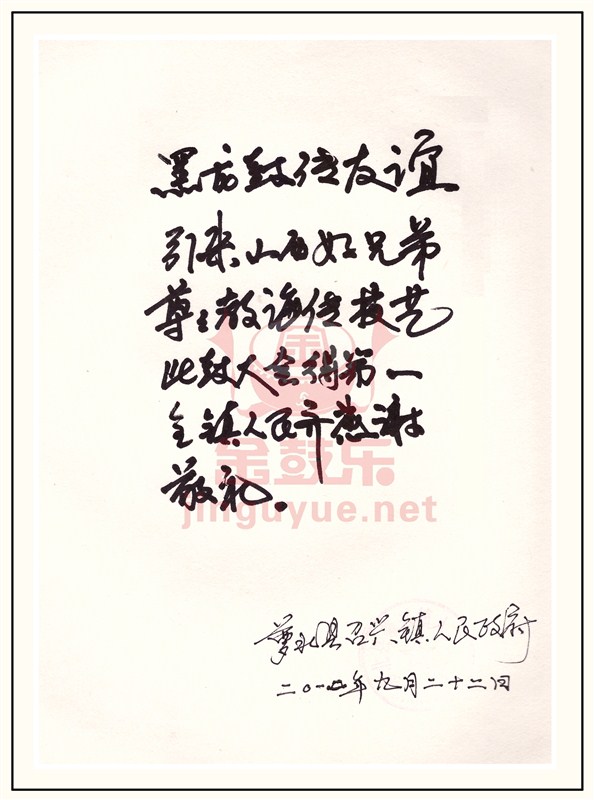 黑前鼓传友谊
引来山西好兄弟
尊尊教诲传技艺
此鼓大会得第一
全镇人民齐感谢
敬礼。
金鼓乐
jinguyue.net
萝北县召兴镇人民政府
二〇一〇年九月二十二日